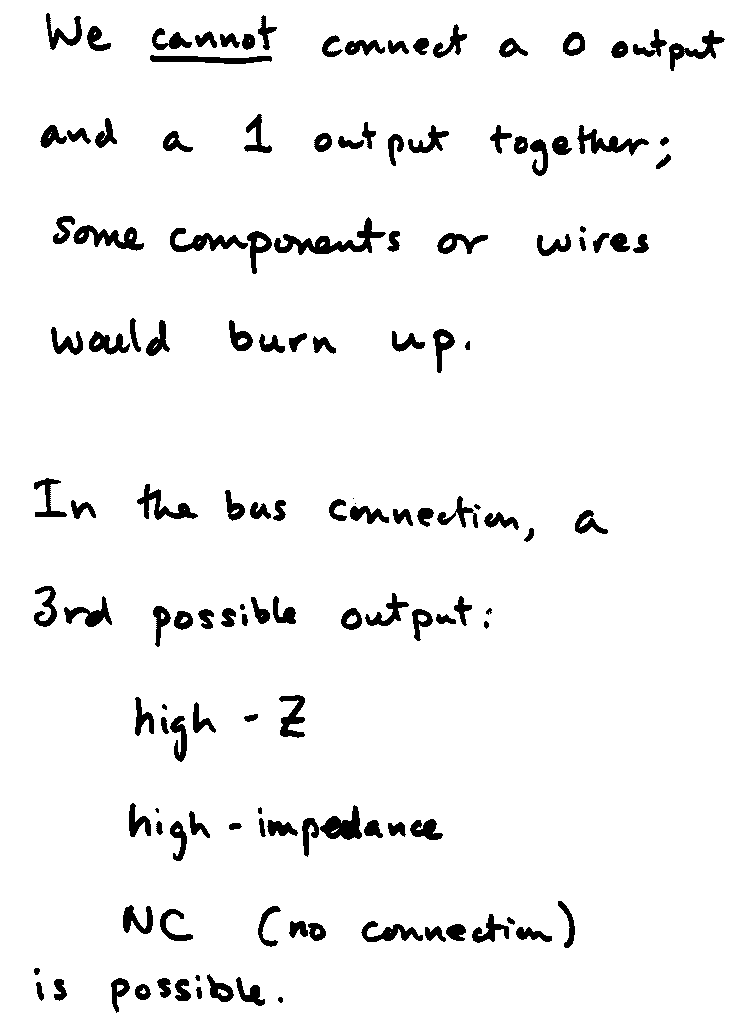 We cannot connect a 0 output
and a 1 output together;
some components or wires
would burn up.
In the bus connection, a
3rd possible output:
high - Z
high - impedance
NC (no connection)
is possible.